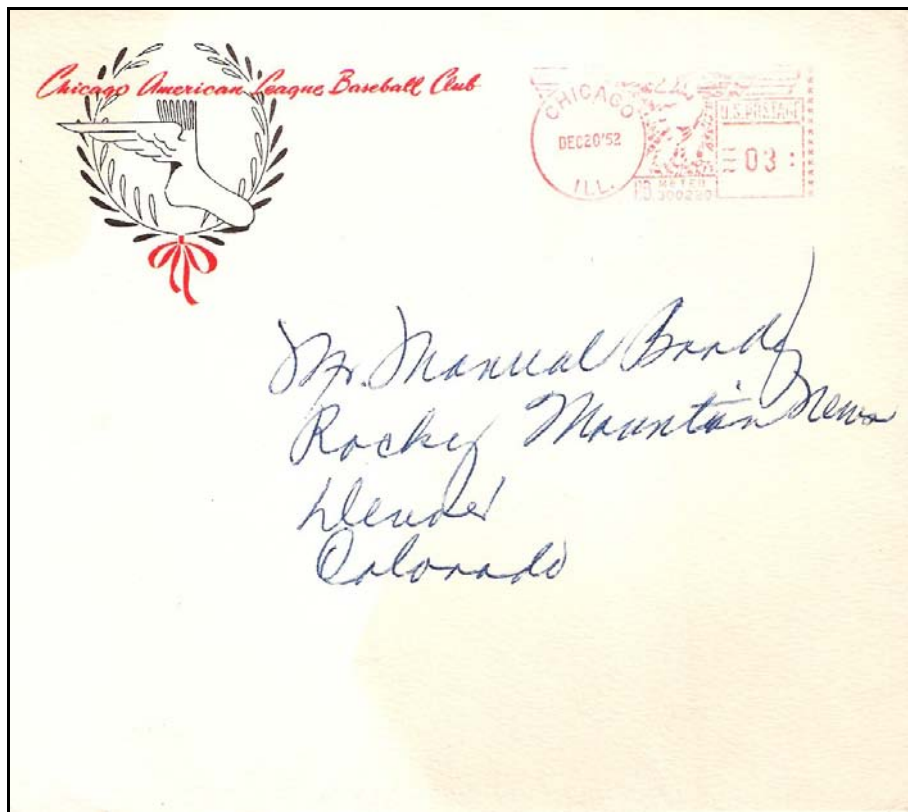 Chicago American League Baseball Club
CHICAGO
DEC20'52
ILL.
U.S. POSTAGE
03
P.B. METER
300220
Mr. Manual Boody
Rocky Mountain News
Denver
Colorado